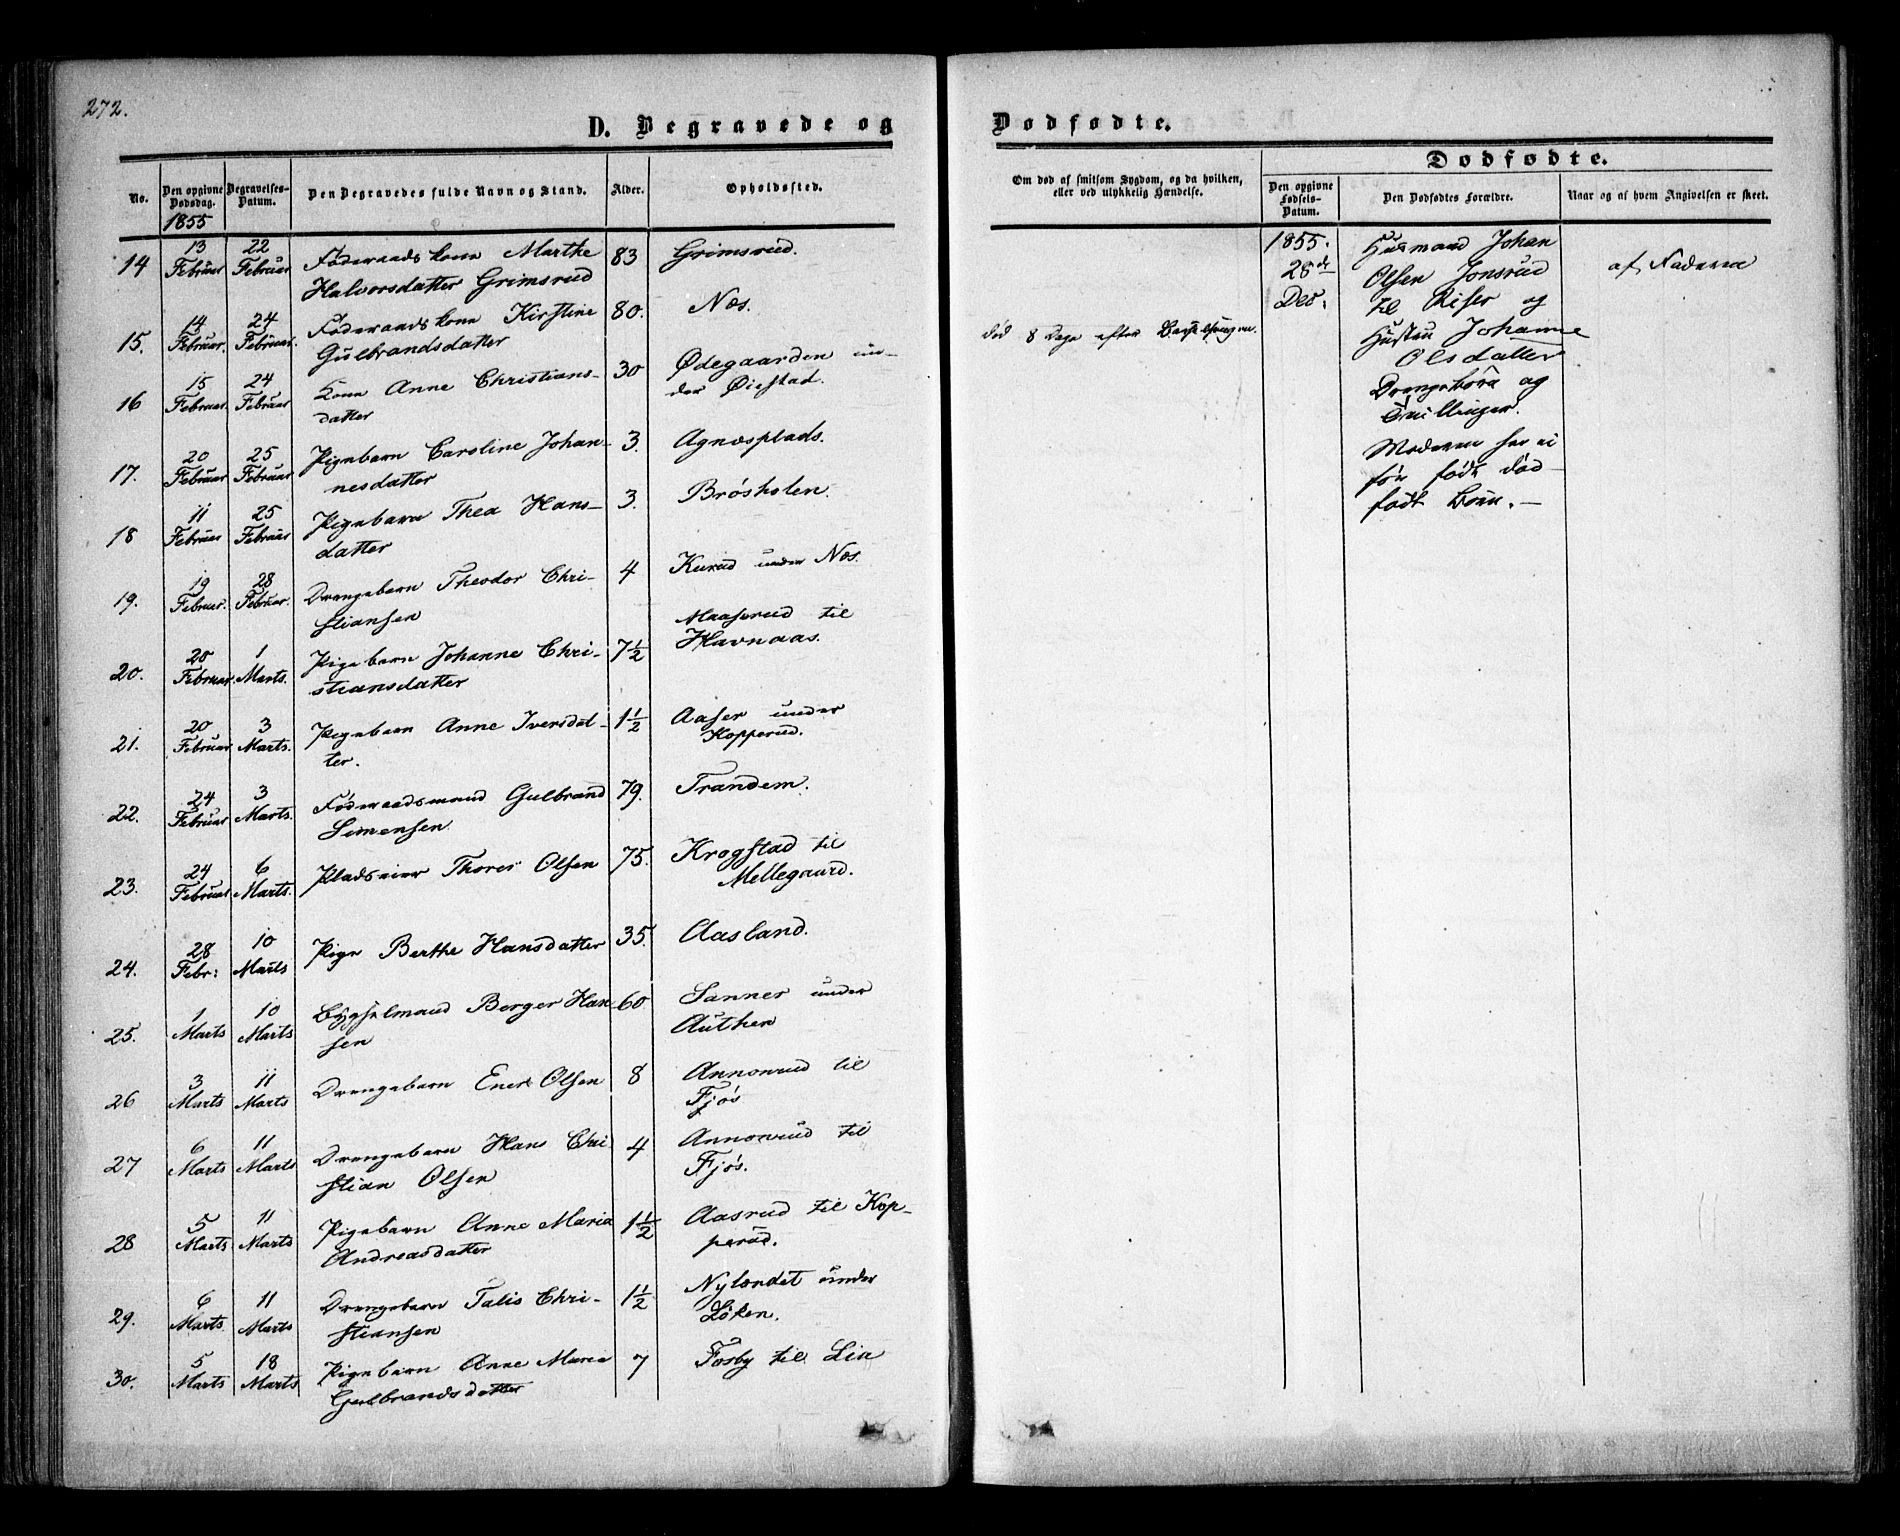 272.
D. Begravede og
No.
Den opgivne Dødsdag.
Begravelses-Datum.
Den Begravedes fulde Navn og Stand.
Alder.
Opholdssted.
1855
14 13 Februar 22 Februar Föderaadskone Marthe 83 Grimsrud.
Halvorsdatter Grimsrud
15. 14 Februar. 24 Februar. Föderaadskone Kirstine 80. Næs.
Gulbrandsdatter
16 15 Februar. 24 Februar Kone Anne Christians- 30 Ødegaarden un-
datter der Øiestad.
17. 20 Februar 25 Februar Pigebarn Caroline Johan- 3. Agnæsplads.
nesdatter
18 11 Februar 25 Februar Pigebarn Thea Hans- 3. Brøsholen.
datter
19. 19 Februar. 28 Februar. Drengebarn Theodor Chri- 4 Kurud under Næs.
stiansen
20. 20 Februar. 1 Marts. Pigebarn Johanne Chri- 7½ Maaserud til
stiansdatter Havnaas.
21. 20 Februar 3 Marts. Pigebarn Anne Iversdat- 1½ Aaser under
ter. Kopperud.
22. 24 Februar 3 Marts. Föderaadsmand Gulbrand 79. Trandem.
Simensen
23. 24 Februar 6 Marts. Pladseier Thorer Olsen 75. Krogstad til
Mellegaard.
24. 28 Febr: 10 Marts Pige Berthe Hansdatter 35. Aasland.
25. 1 Marts 10 Marts Bygselmand Borger Han 60. Sanner under
sen Authen
26 3 Marts 11 Marts Drengebarn Enert Olsen 8 Annonrud til
Fjøs
27 6 Marts 11 Marts Drengebarn Hans Chri 4 Annonrud til
stian Olsen Fjøs.
28 5 Marts 11 Marts Pigebarn Anne Maria 1½ Aasrud til Kop-
Andreasdatter perud.
29. 6 Marts. 11 Marts Drengebarn Talis Chri- 1½ Nylændet under
stiansen Løken.
30. 5 Marts 18 Marts Pigebarn Anne Maria 7 Fosby til Lia
Gulbrandsdatter
Dødfødte.
Om død af smitsom Sygdom, og da hvilken,
eller ved ulykkelig Hændelse.
Dødfødte.
Den opgivne Fødsels-Datum.
Den Dødfødtes Forældre.
Naar og af hvem Angivelsen er skeet.
död 8 Dage efter Barselsengen.
1855.
28de
Dec.
Husmand Johan
Olsen Jonsrud
til Riser og
Hustru Johanne
Olsdatter
Drengebörn og
Tvillinger.
Moderen har ei
för födt död-
födt Börn. —
af Faderen